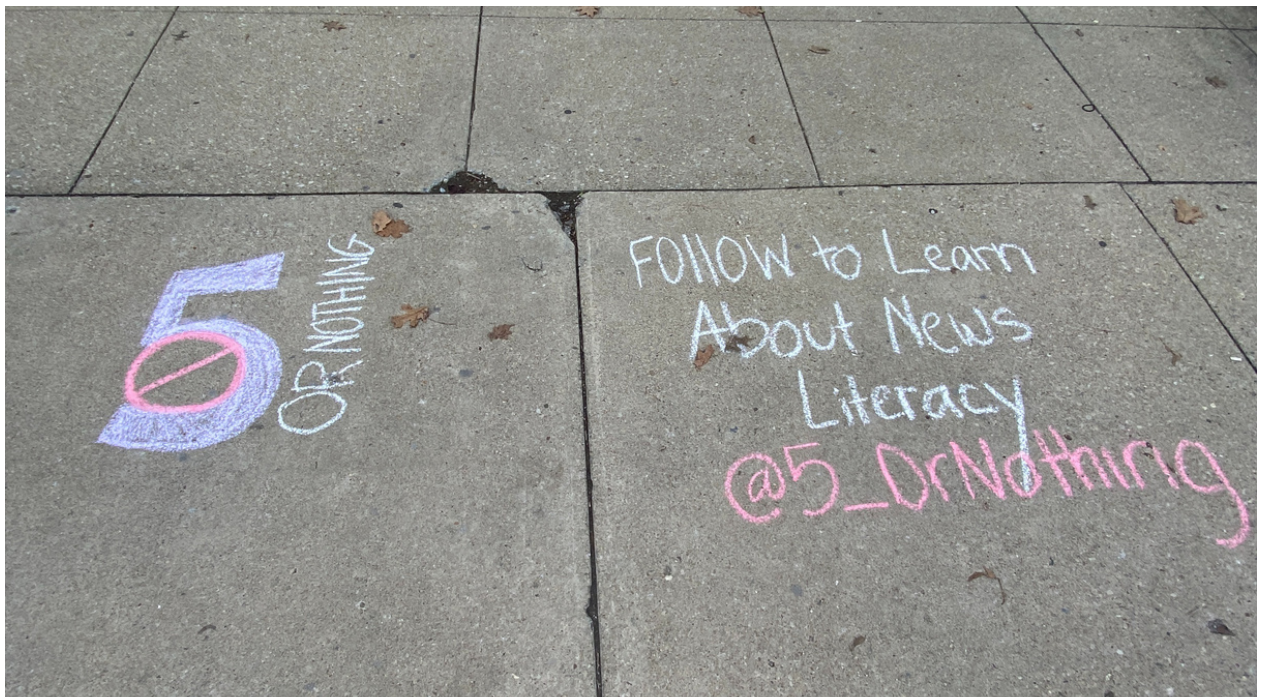 5
OR NOTHING
FOllOW to Learn
About News
Literacy
@5_OrNothing